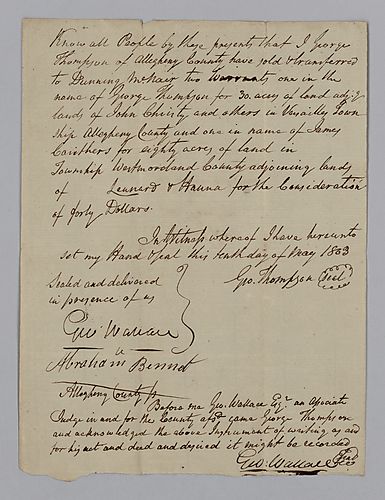 Know all People by these presents that I George
Thompson of Allegheny County have sold & transferred
to Dunning McNair two Warrants one in the
name of George Thompson for 30 acres of land adjg
lands of John Christy and others in Versailles Town
ship Allegheny County and one in name of James
Carothers for eighty acres of land in
Township Westmoreland County adjoining lands
of Leonard & Hanna for the Consideration
of forty Dollars.
In Witness whereof I have hereunto
set my Hand & Seal this tenth day of May 1803
Sealed and delivered
in presence of us
Geo. Thompson Seal
Geo Wallace
Abraham Bennet
Allegheny County ss
Before me Geo. Wallace Esqr. an Associate
Judge in and for the County afsd came George Thompson
and acknowledged the above Instrument of writing as and
for his act and deed and desired it might be recorded
Geo. Wallace Seal